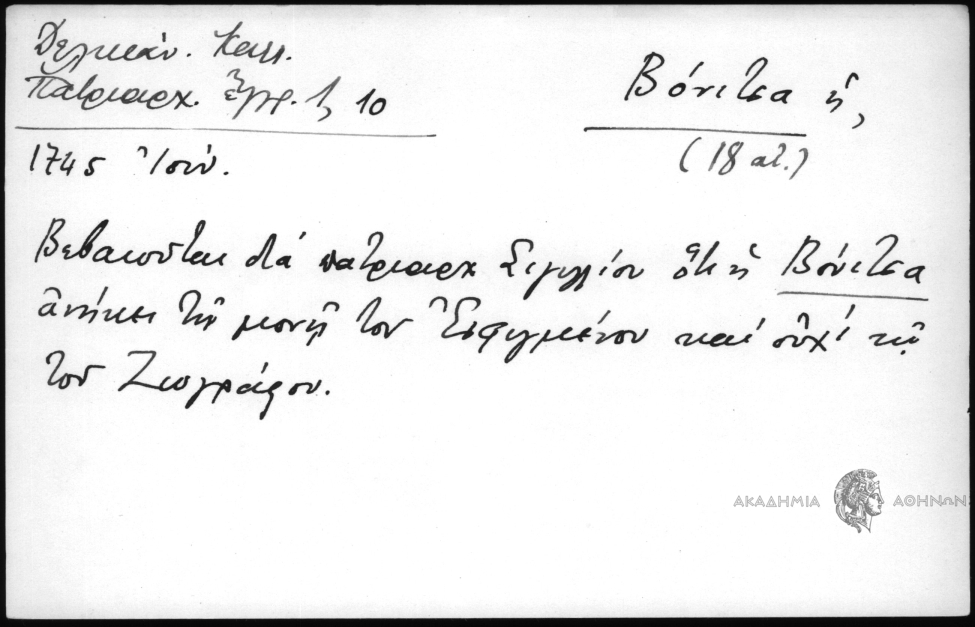 Δελικάν. Καλλ.
Πατριαρχ. Ἔγγρ. τ, 10
Βόνιτσα ἡ,
(18 αἰ.)
1745 Ἰούν.
Βεβαιοῦται διά πατριαρχ Σιγιλλίου ὅτι ἡ Βόνιτσα
ἀνήκει τῇ μονῇ τοῦ Ἐσφιγμένου καί οὐχί τῇ
τοῦ Ζωγράφου.
ΑΚΑΔΗΜΙΑ ΑΘΗΝΩΝ